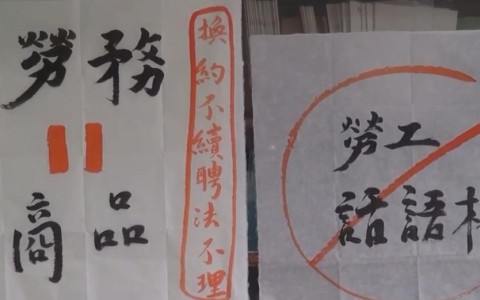 勞務
商品
換約不續聘法不理
勞工
話語